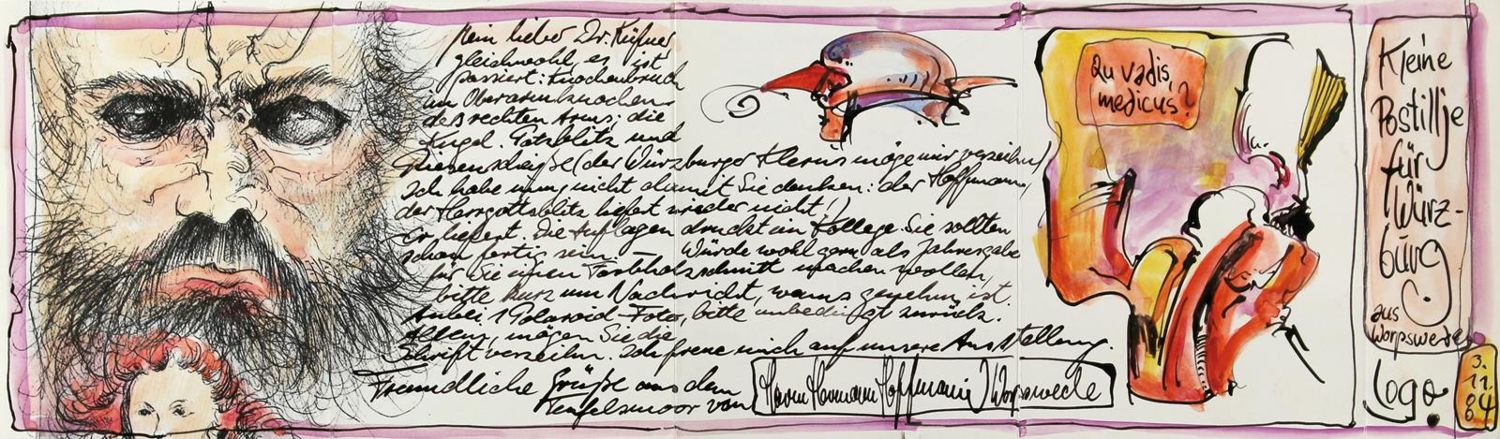 Mein lieber Dr. Küfner,
gleichwohl, es ist
passiert: Knochenbruch
im Oberarmknochen
des rechten Arms; die
Kugel. Potzblitz und
(der Würzburger Klerus möge mir verzeihen)
Ich habe nicht damit Sie denken: der Hoffmann,
der Herrgottsblitz liefert wieder nicht!)
Er liefert. Die Auflagen druckt ein Kollege. Sie sollten
schon fertig sein. Würde wohl gern als Jahresgabe
für Sie einen Farbholzschnitt machen wollen,
bitte kurz um Nachricht, wanns genehm ist.
Anbei 1 Polaroid-Foto, bitte unbedingt zurück.
mögen Sie die
Schrift verzeihn. Ich freue mich auf unsere Ausstellung.
Freundliche Grüße aus dem
Teufelsmoor von
Hoffmann Worpswede
Qu vadis,
medicus?
Kleine
Postillje
für
Würz-
burg
aus
Worpswede
Logo.
3.
11.
84